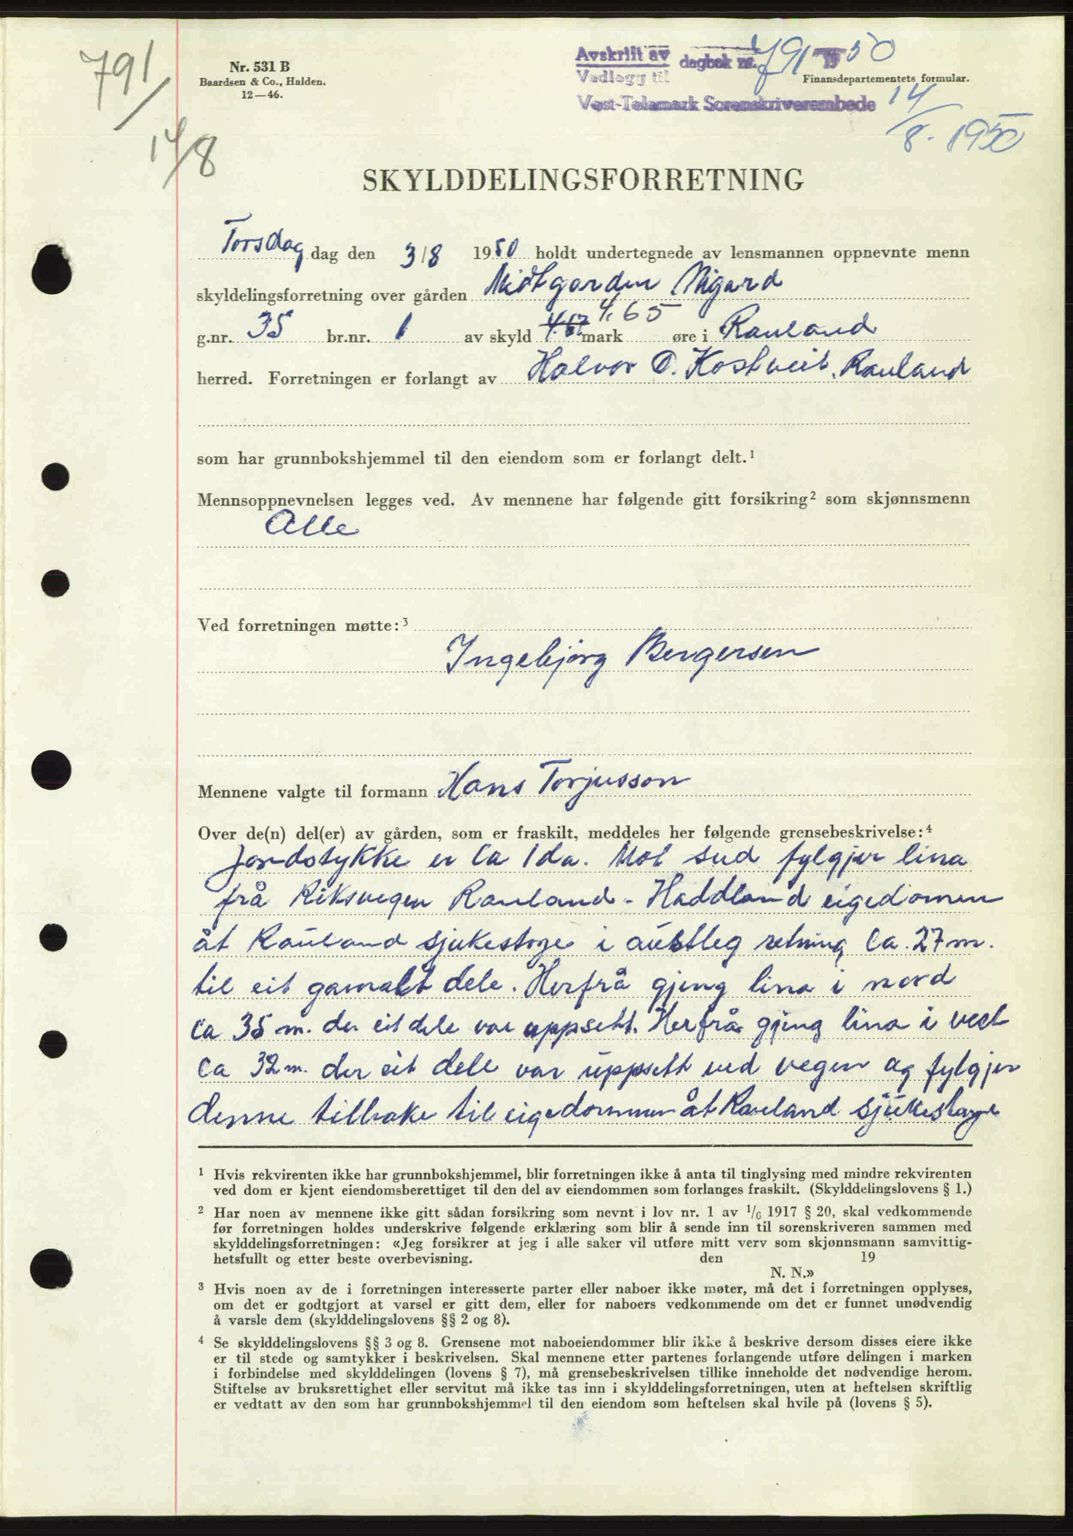 791/
14/8
Nr. 531 B
Baardsen & Co., Halden.
12—46.
Avskrift av dagbok nr. 791 1950
Vedlegg til
Finansdepartementets formular.
Vest-Telemark Sorenskriverembede 14/8-1950
SKYLDDELINGSFORRETNING
Torsdag dag den 3/8 1950 holdt undertegnede av lensmannen oppnevnte menn
skyldelingsforretning over gården Midtgarden Nigard
g.nr. 35 br.nr. 1 av skyld 4.65 mark øre i Rauland
herred. Forretningen er forlangt av Halvor O. Kostveit, Rauland
som har grunnbokshjemmel til den eiendom som er forlangt delt.¹
Mennsoppnevnelsen legges ved. Av mennene har følgende gitt forsikring² som skjønnsmenn
Alle
Ved forretningen møtte:³
Ingebjørg Bergersen
Mennene valgte til formann Hans Torjusson
Over de(n) del(er) av gården, som er fraskilt, meddeles her følgende grensebeskrivelse:⁴
Jordstykke er ca 1 da. Mot sud fylgjer lina
frå Riksvegen Rauland - Haddland eigedomen
åt Rauland sjukestoge i austleg retning ca. 27 m.
til eit gamalt dele. Herfrå gjeng lina i nord
ca 35 m. der eit dele var uppsett. Herfrå gjeng lina i vest
ca 32 m. der eit dele var uppsett ved vegen og fylgjer
denne tilbake til eigedommen åt Rauland sjukestoge
¹ Hvis rekvirenten ikke har grunnbokshjemmel, blir forretningen ikke å anta til tinglysing med mindre rekvirenten
ved dom er kjent eiendomsberettiget til den del av eiendommen som forlanges fraskilt. (Skylddelingslovens § 1.)
² Har noen av mennene ikke gitt sådan forsikring som nevnt i lov nr. 1 av 1/6 1917 § 20, skal vedkommende
før forretningen holdes underskrive følgende erklæring som blir å sende inn til sorenskriveren sammen med
skylddelingsforretningen: «Jeg forsikrer at jeg i alle saker vil utføre mitt verv som skjønnsmann samvittig-
hetsfullt og etter beste overbevisning. den 19
N. N.»
³ Hvis noen av de i forretningen interesserte parter eller naboer ikke møter, må det i forretningen opplyses,
om det er godtgjort at varsel er gitt dem, eller for naboers vedkommende om det er funnet unødvendig
å varsle dem (skylddelingslovens §§ 2 og 8).
⁴ Se skylddelingslovens §§ 3 og 8. Grensene mot naboeiendommer blir ikke å beskrive dersom disses eiere ikke
er til stede og samtykker i beskrivelsen. Skal mennene etter partenes forlangende utføre delingen i marken
i forbindelse med skylddelingen (lovens § 7), må grensebeskrivelsen tillike inneholde det nødvendige herom.
Stiftelse av bruksrettighet eller servitut må ikke tas inn i skylddelingsforretningen, uten at heftelsen skriftlig
er vedtatt av den som har grunnbokshjemmel til den eiendom som heftelsen skal hvile på (lovens § 5).